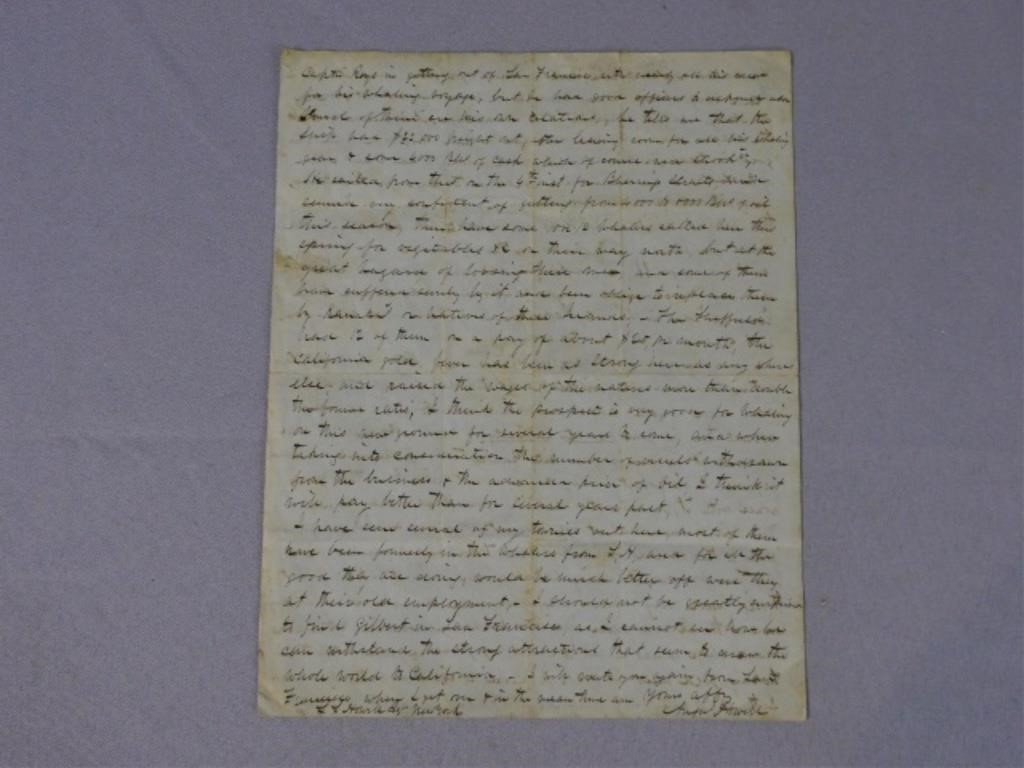 Captn Roys in getting out of San Francisco, with nearly all his crew
for his whaling voyage, but he had good officers &
several of them are his own relations, he tells me that the
ship had $22,000 freight out, after leaving room for all his whaling
gear & some 4000 Bbl of cask which of course
He sailed from that on the 4th inst for Bherring Straits
confident of getting from 4000 to Bbls of oil
this season, there have some whalers called here this
spring for vegetables &c on their way north, but at the
great hazard of loosing their men, and some of them
have suffered by it and been oblige to replace them
by Kanakas or natives of these Islands, - The Sheffield
have 12 of them on a pay of about $20 pr month, the
California gold fever has been as strong here as any where
else and raised the wages of the natives more than trouble
the former rates, I think the prospect is very good for whaling
on this new ground for several years to come, and when
taking into consideration the number of vessels withdrawn
from the business & the advanced price of oil I think it
will pay better than for several years past,
I have seen several of my out here, most of them
have been formerly in the whalers from S.H. and for all the
good they are doing, would be much better off were they
at their old employment, - I should not be greatly surprised
to find Gilbert in San Francisco, as I cannot see how he
can withstand the strong attractions that seem to draw the
whole world to California, - I will write you again from San
Francisco when I get over & in the mean time am Yours affy
New York